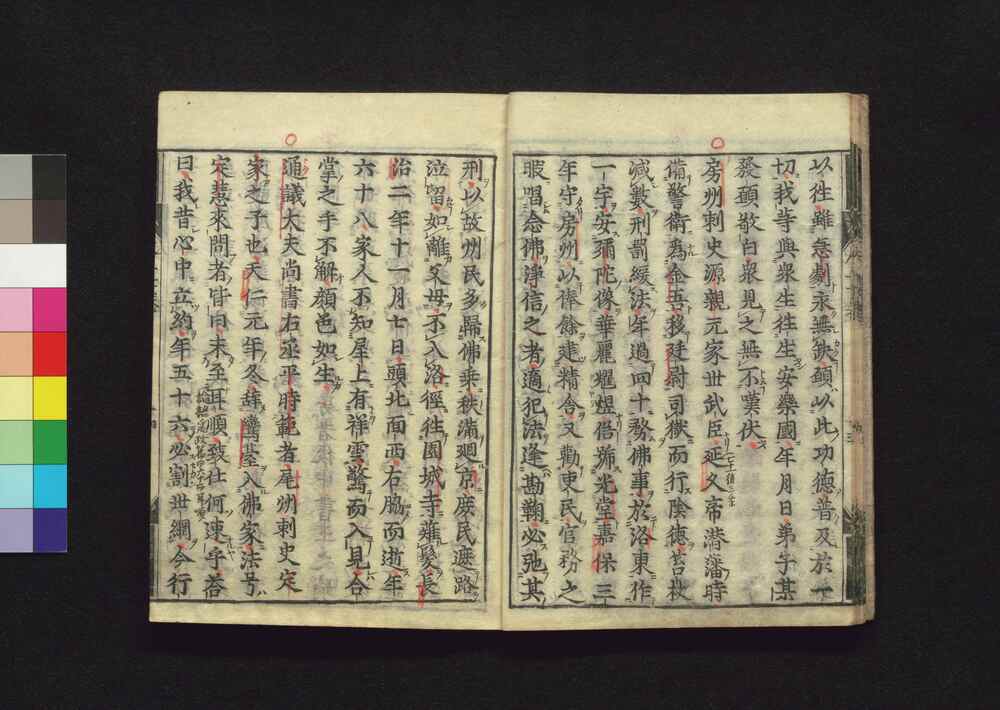 以往雖急劇永無缺願以此功德普及於一
切我等與衆生往生安樂國年月日弟子某
發願敬白衆見之無不嘆伏
房州刺史源親元家世武臣延久帝潛藩時
備警衛為金吾移廷尉司獄而行陰德笞杖
減數刑罰緩法年過四十務佛事於洛東作
一宇安彌陀像華麗耀煜俗號光堂嘉保三
年守房州以俸餘建精舍又勸吏民官務之
暇唱念佛淨信之者適犯法逢勘鞠必弛其
刑以故州民多歸佛乘秩滿廻京庶民遮路
泣留如離父母不入洛徑往園城寺薙髮長
治二年十一月七日頭北面西右脇而逝年
六十八家人不知屋上有祥雲驚而入見合
掌之手不解顏色如生
通議大夫尚書右丞平時範者尾州刺史定
家之子也天仁元年冬辭蘭臺入佛家法号
定慧來問者皆曰未至耳順致仕何速乎荅
曰我昔心中立約年五十六必割世綱今行